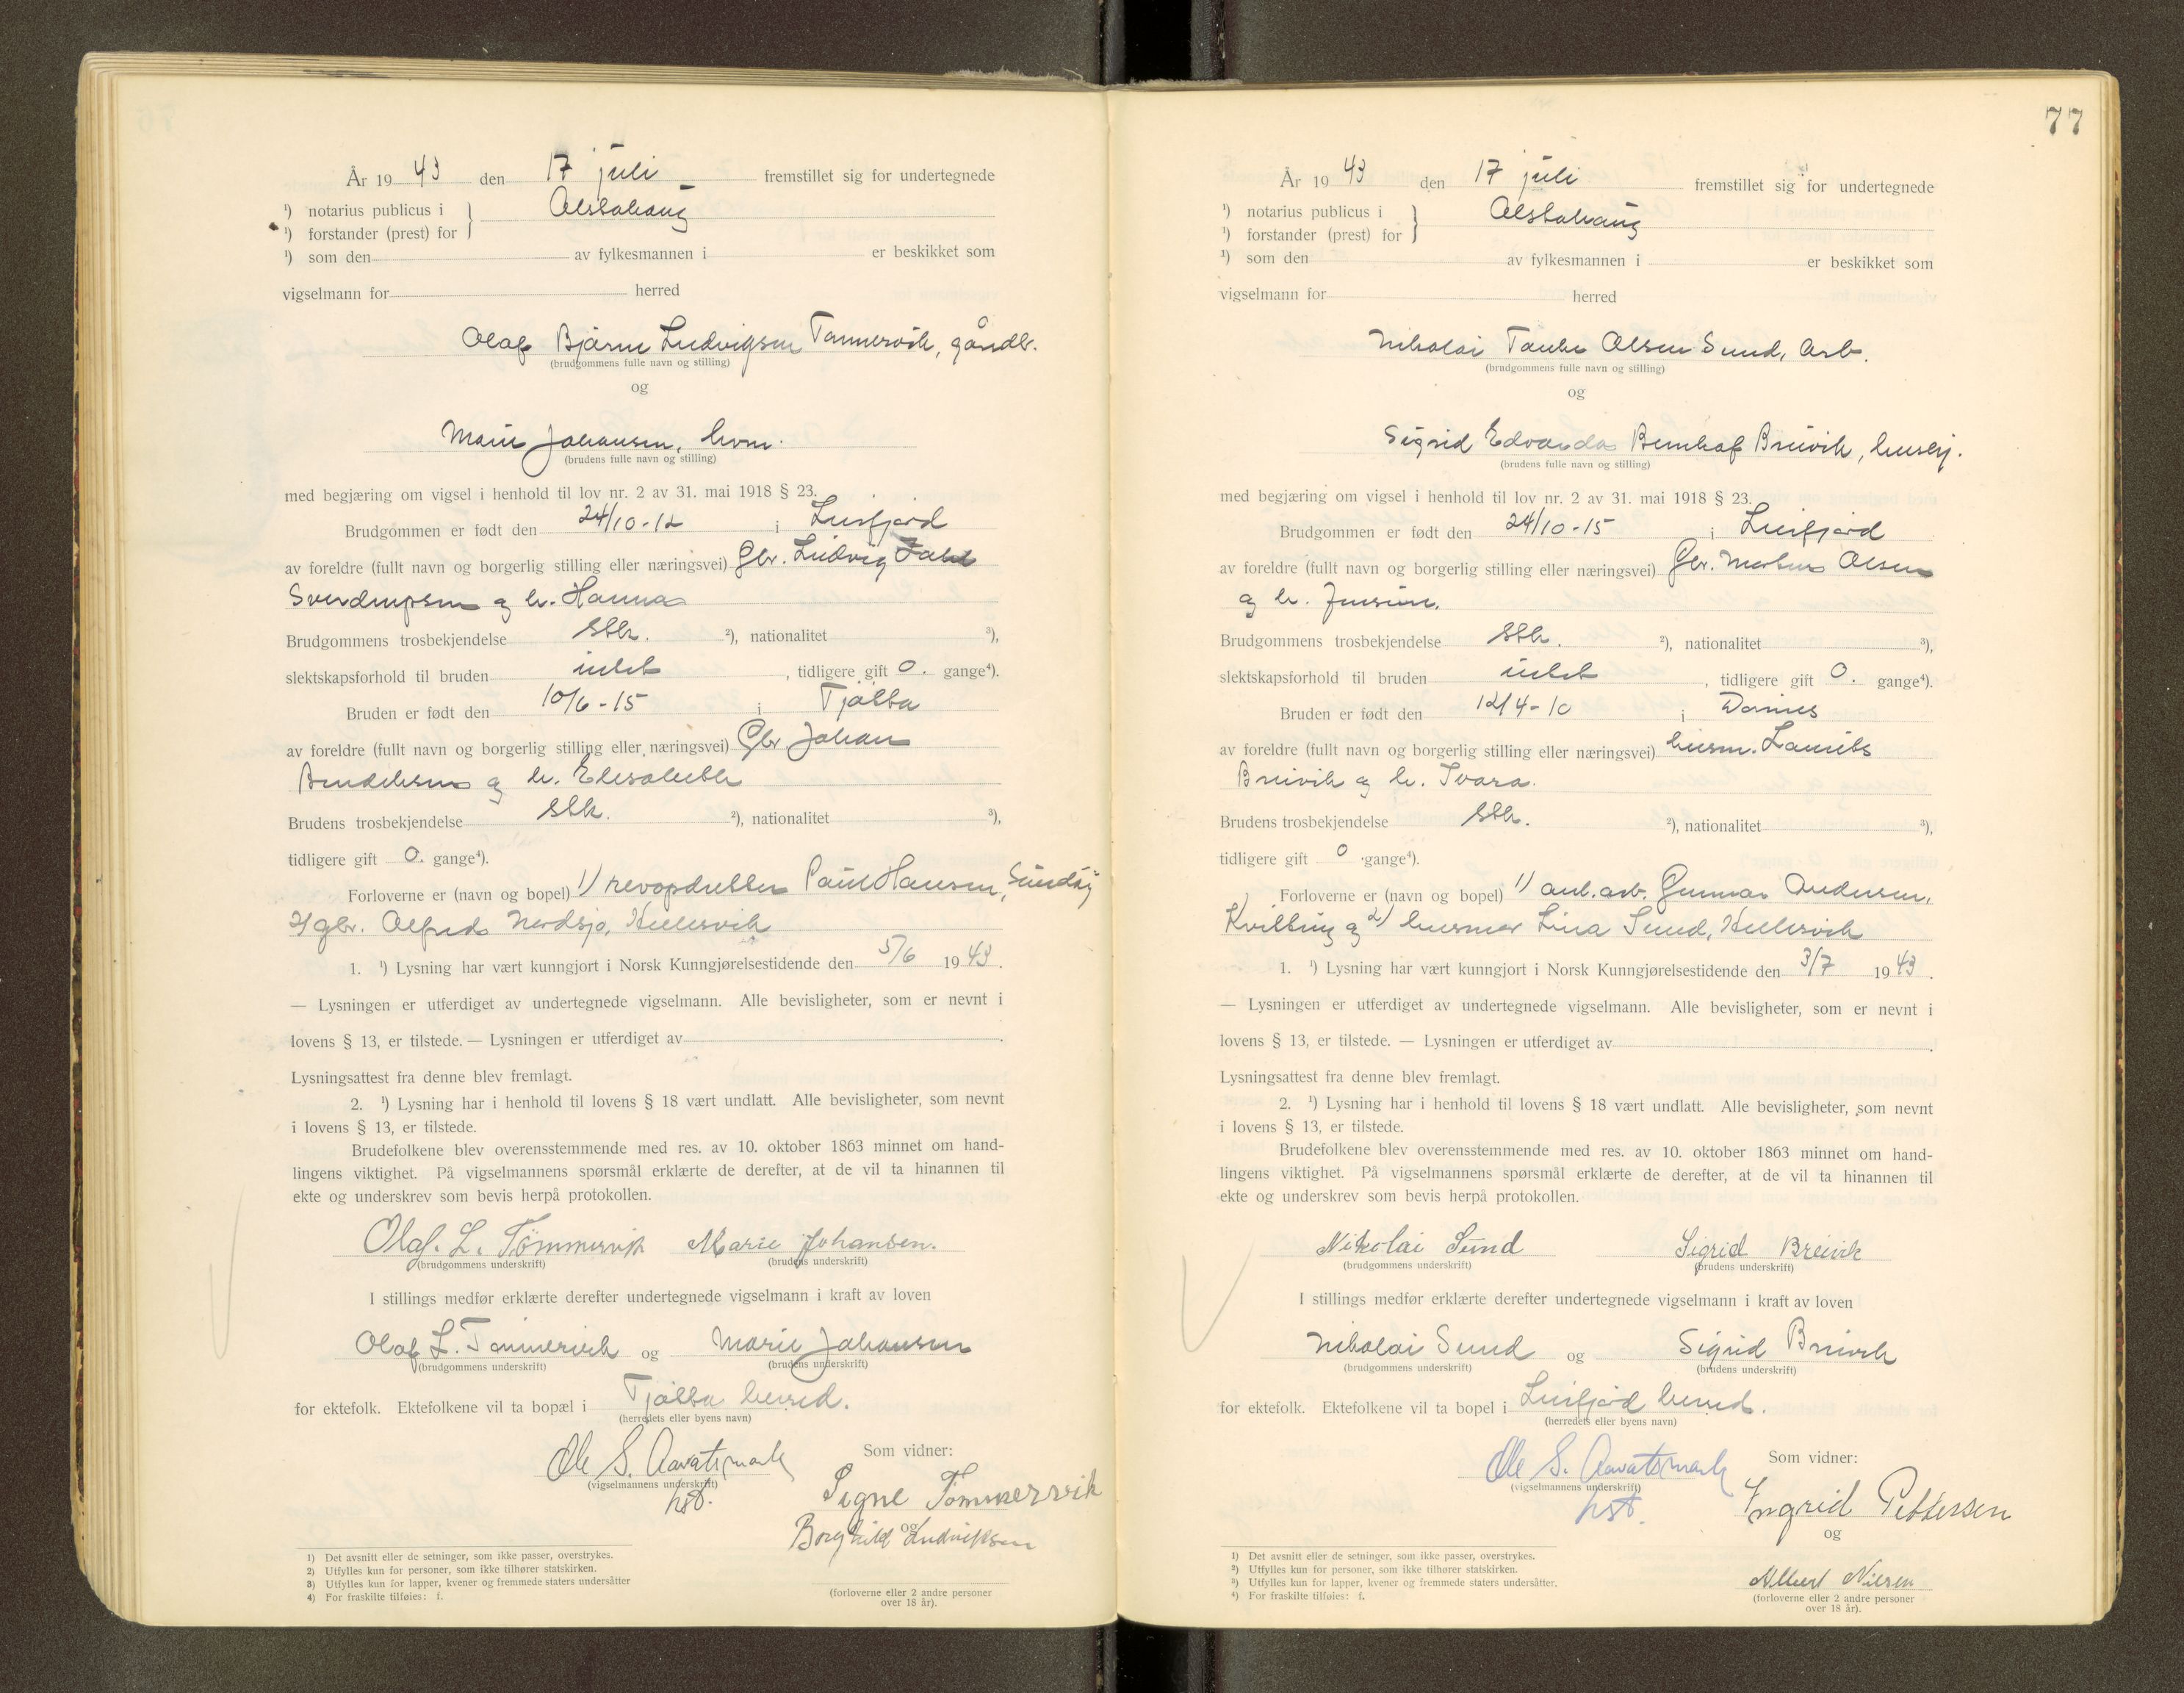 År 19 43 den 17 juli fremstillet sig for undertegnede
¹) notarius publicus i
¹) forstander (prest) for } Alstahaug
¹) som den av fylkesmannen i er beskikket som
vigselmann for herred
Olaf Bjarne Ludvigsen Tømmervik, gårdbr.
(brudgommens fulle navn og stilling)
og
Marie Johansen, hvm.
(brudens fulle navn og stilling)
med begjæring om vigsel i henhold til lov nr. 2 av 31. mai 1918 § 23.
Brudgommen er født den 24/10-12 i Leirfjord
av foreldre (fullt navn og borgerlig stilling eller næringsvei) Gbr. Ludvig
Sverdrupsen og h. Hanna
Brudgommens trosbekjendelse Stk. ²), nationalitet ³),
slektskapsforhold til bruden intet , tidligere gift 0. gange⁴).
Bruden er født den 10/6-15 i Tjøtta
av foreldre (fullt navn og borgerlig stilling eller næringsvei) Gbr Johan
Bendiksen og h. Elisabeth
Brudens trosbekjendelse Stk. ²), nationalitet ³),
tidligere gift 0. gange⁴).
Forloverne er (navn og bopel) 1) Paul Hansen, Sundøy
2) gbr. Alfred Nordsjø, Hellesvik
1. ¹) Lysning har vært kunngjort i Norsk Kunngjørelsestidende den 5/6 19 43.
— Lysningen er utferdiget av undertegnede vigselmann. Alle bevisligheter, som er nevnt i
lovens § 13, er tilstede. — Lysningen er utferdiget av .
Lysningsattest fra denne blev fremlagt.
2. ¹) Lysning har i henhold til lovens § 18 vært undlatt. Alle bevisligheter, som nevnt
i lovens § 13, er tilstede.
Brudefolkene blev overensstemmende med res. av 10. oktober 1863 minnet om hand-
lingens viktighet. På vigselmannens spørsmål erklærte de derefter, at de vil ta hinannen til
ekte og underskrev som bevis herpå protokollen.
Olaf. L. Tömmervik Marie Johansen.
(brudgommens underskrift) (brudens underskrift)
I stillings medfør erklærte derefter undertegnede vigselmann i kraft av loven
Olaf L. Tømmervik og Marie Johansen
(brudgommens underskrift) (brudens underskrift)
for ektefolk. Ektefolkene vil ta bopæl i Tjøtta herred.
(herredets eller byens navn)
Ole S. Aavatsmark Som vidner:
(vigselmannens underskrift)
hst.
Signe Tømmervik
og
Borghild Ludvigsen
1) Det avsnitt eller de setninger, som ikke passer, overstrykes.
2) Utfylles kun for personer, som ikke tilhører statskirken.
3) Utfylles kun for lapper, kvener og fremmede staters undersåtter
4) For fraskilte tilføies: f.
(forloverne eller 2 andre personer
over 18 år).
77
År 19 43 den 17 juli fremstillet sig for undertegnede
¹) notarius publicus i
¹) forstander (prest) for } Alstahaug
¹) som den av fylkesmannen i er beskikket som
vigselmann for herred
Nikolai Tanke Olsen Sund, arb.
(brudgommens fulle navn og stilling)
og
Sigrid Edvarda Bernhof Breivik, hushj.
(brudens fulle navn og stilling)
med begjæring om vigsel i henhold til lov nr. 2 av 31. mai 1918 § 23.
Brudgommen er født den 24/10-15 i Leirfjord
av foreldre (fullt navn og borgerlig stilling eller næringsvei) Gbr. Olsen
og h. Jensine.
Brudgommens trosbekjendelse Stk. ²), nationalitet ³),
slektskapsforhold til bruden intet , tidligere gift 0. gange⁴).
Bruden er født den 12/4-10 i Dønnes
av foreldre (fullt navn og borgerlig stilling eller næringsvei) husm. Laurits
Breivik og h. Ivara.
Brudens trosbekjendelse Stk. ²), nationalitet ³),
tidligere gift 0 gange⁴).
Forloverne er (navn og bopel) 1) anl.arb. Gunnar Andersen,
Kvitting og 2) husmor Lina Sund, Hellesvik
1. ¹) Lysning har vært kunngjort i Norsk Kunngjørelsestidende den 3/7 19 43.
— Lysningen er utferdiget av undertegnede vigselmann. Alle bevisligheter, som er nevnt i
lovens § 13, er tilstede. — Lysningen er utferdiget av .
Lysningsattest fra denne blev fremlagt.
2. ¹) Lysning har i henhold til lovens § 18 vært undlatt. Alle bevisligheter, som nevnt
i lovens § 13, er tilstede.
Brudefolkene blev overensstemmende med res. av 10. oktober 1863 minnet om hand-
lingens viktighet. På vigselmannens spørsmål erklærte de derefter, at de vil ta hinannen til
ekte og underskrev som bevis herpå protokollen.
Nikolai Sund Sigrid Breivik
(brudgommens underskrift) (brudens underskrift)
I stillings medfør erklærte derefter undertegnede vigselmann i kraft av loven
Nikolai Sund og Sigrid Breivik
(brudgommens underskrift) (brudens underskrift)
for ektefolk. Ektefolkene vil ta bopel i Leirfjord herred.
(herredets eller byens navn)
Ole S. Aavatsmark Som vidner:
(vigselmannens underskrift)
hst.
Ingrid Pettersen
og
Albert Nilsen
1) Det avsnitt eller de setninger, som ikke passer, overstrykes.
2) Utfylles kun for personer, som ikke tilhører statskirken.
3) Utfylles kun for lapper, kvener og fremmede staters undersåtter.
4) For fraskilte tilføies: f.
(forloverne eller 2 andre personer
over 18 år).